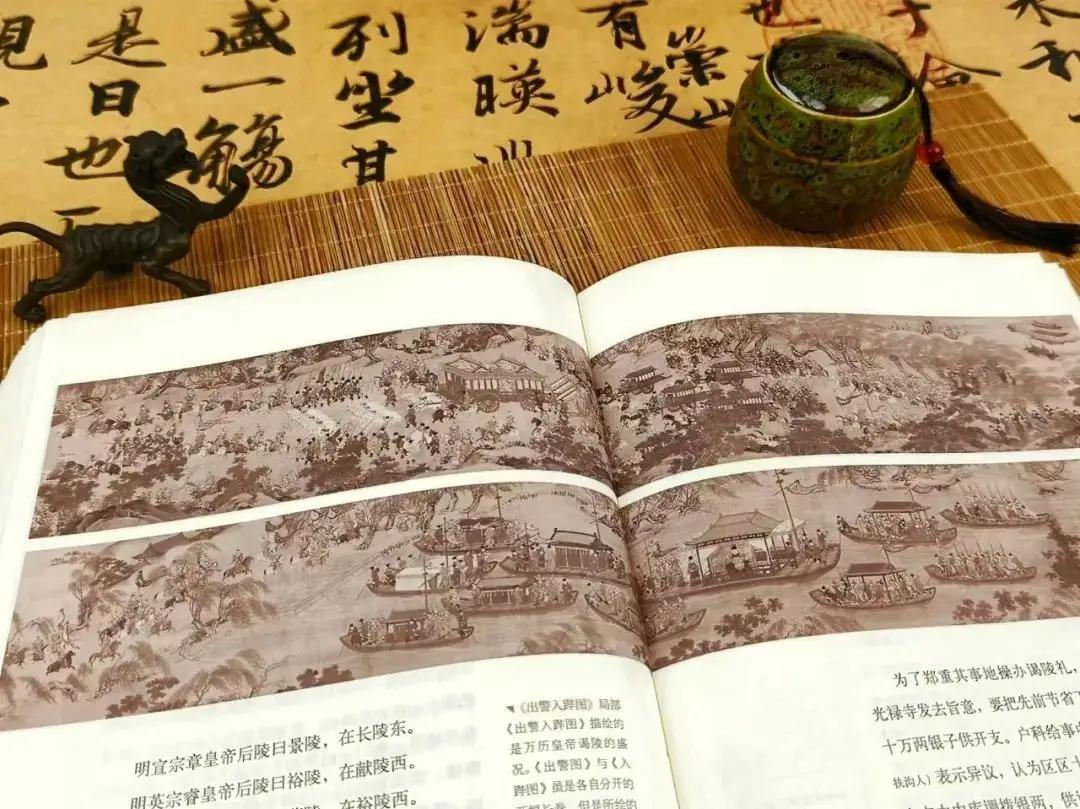 有崇山峻
湍暎
列坐
盛一觴
是日也
明宣宗章皇帝后陵曰景陵，在长陵东。
明英宗睿皇帝后陵曰裕陵，在献陵西。
裕陵西。
《出警入跸图》局部
《出警入跸图》描绘的
是万历皇帝谒陵的盛
况。《出警图》与《入
跸图》虽是各自分开的
但是所绘的
为了郑重其事地操办谒陵礼，
光禄寺发去旨意，要把先前节省
十万两银子供开支。户科给事
扶沟人）表示异议，认为区区
库调拨银两，